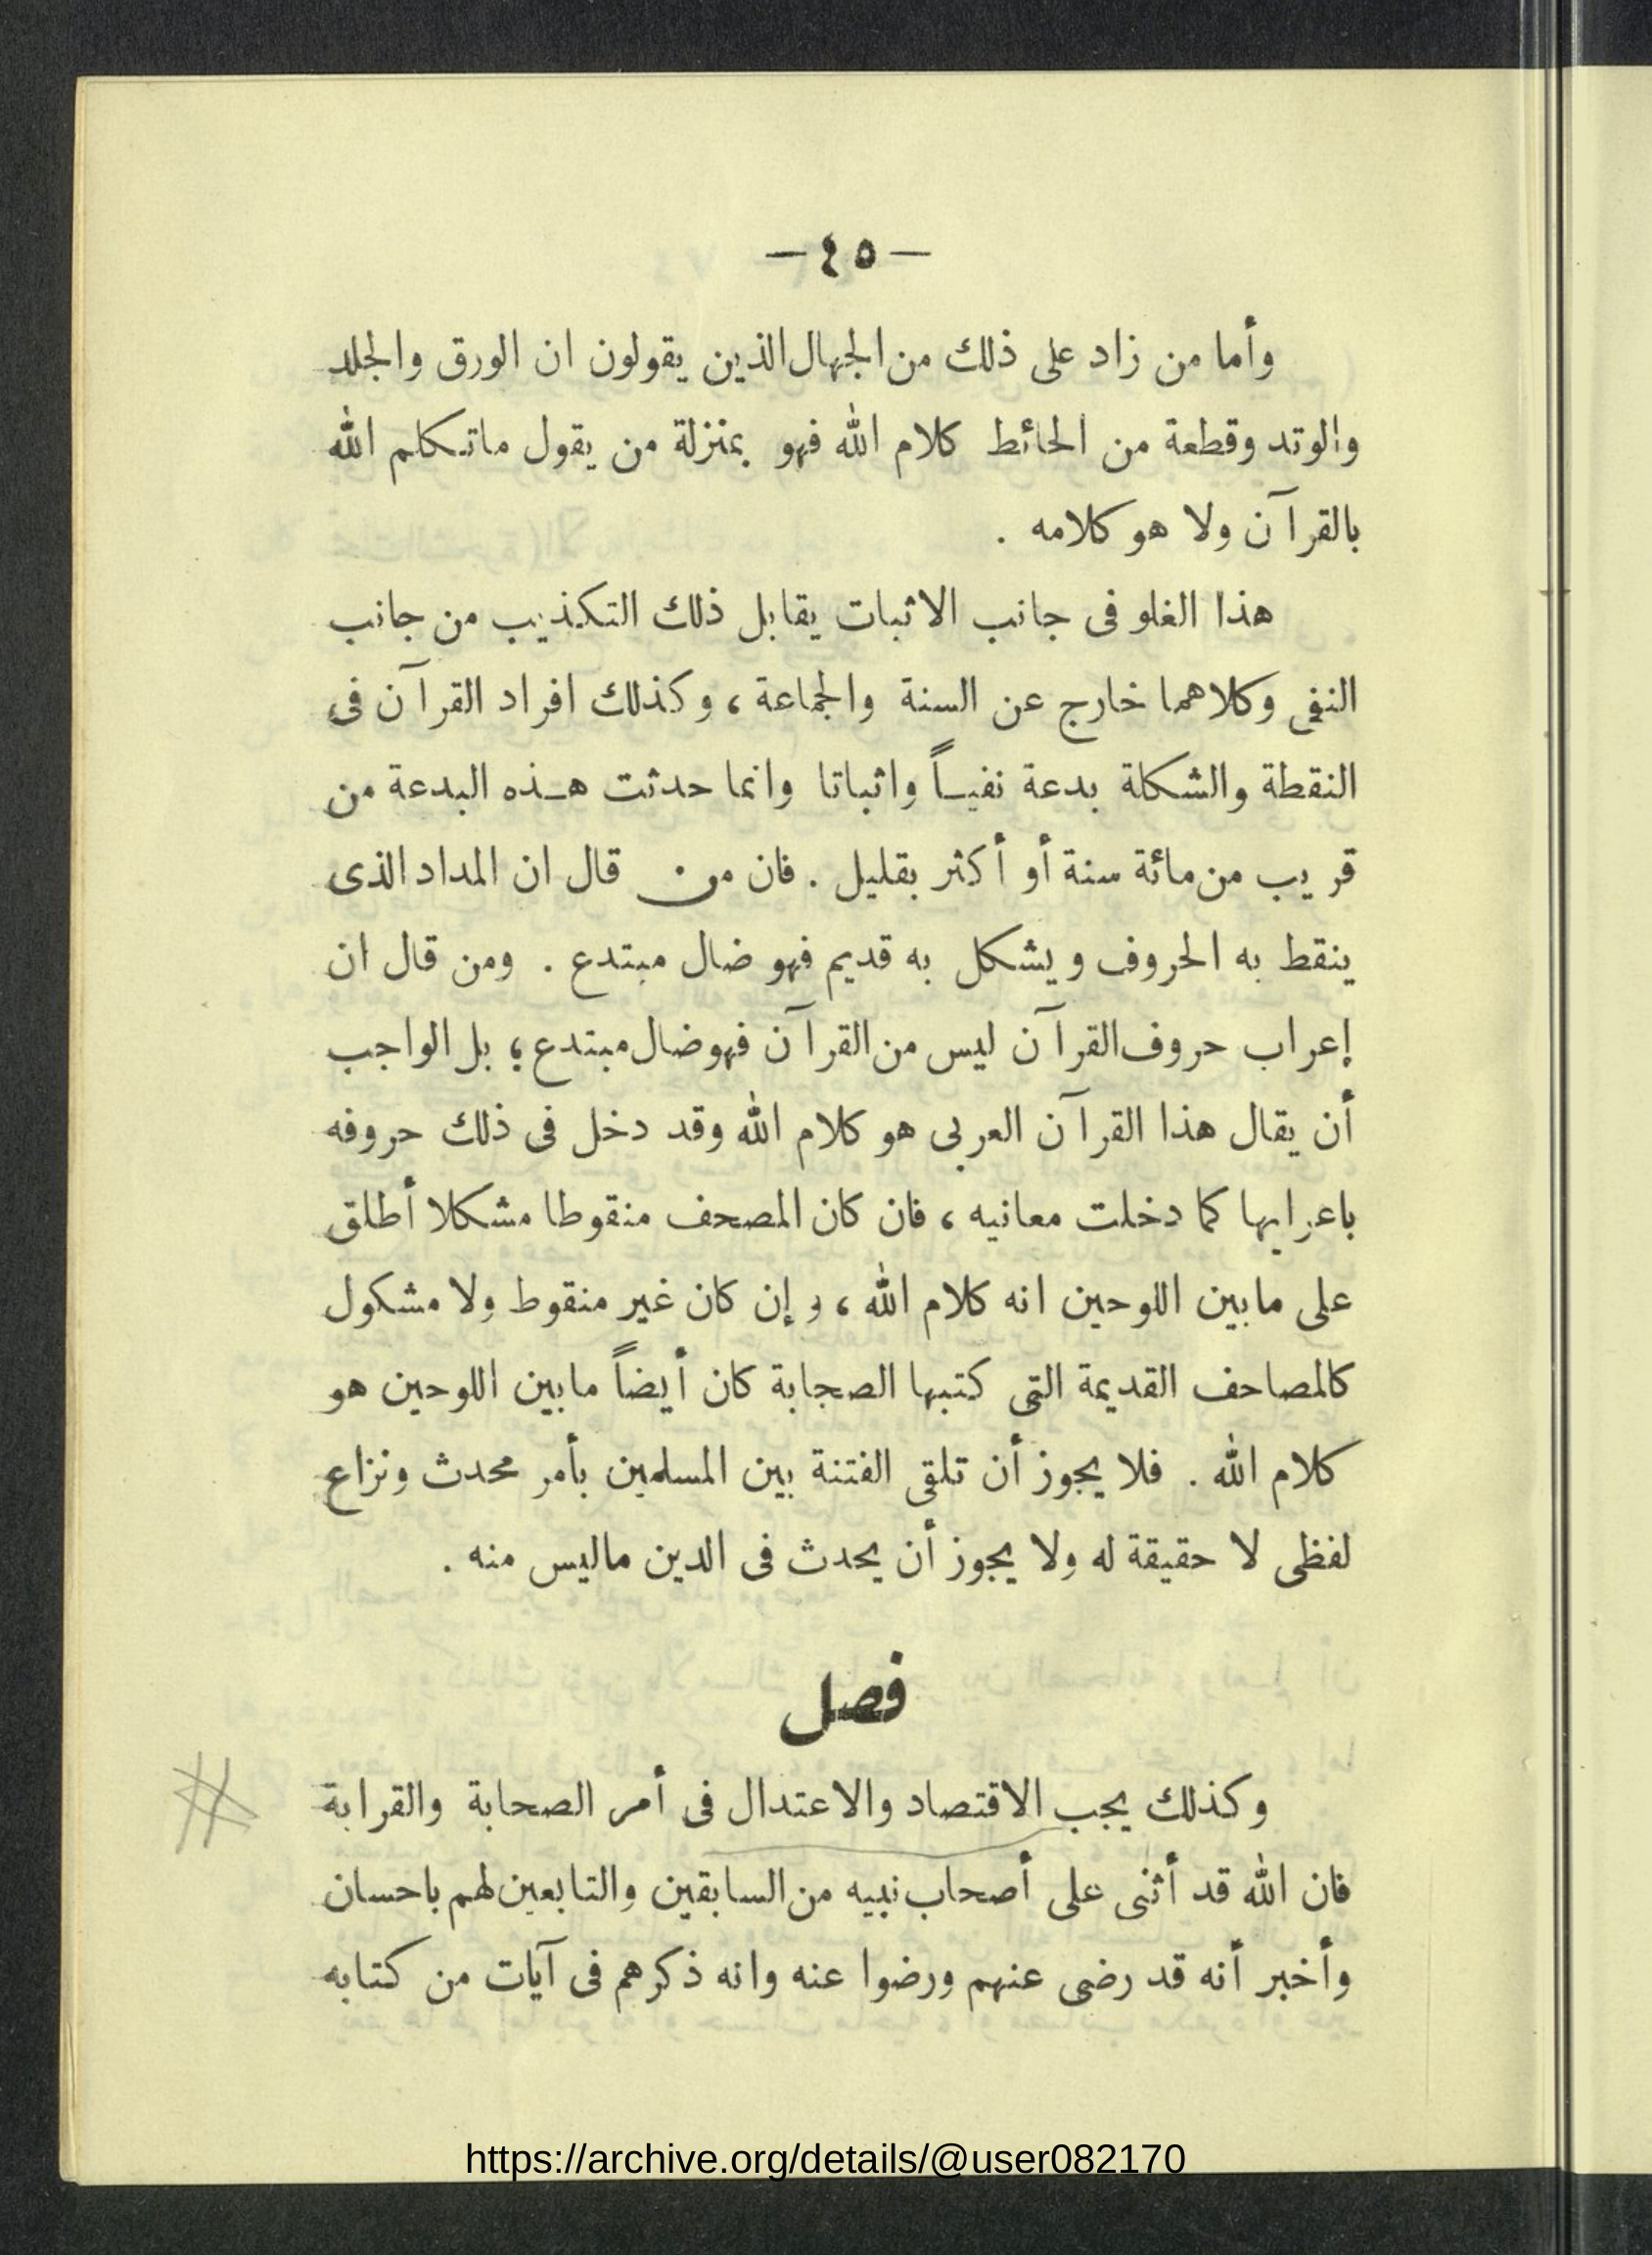 — ٤٥ —
وأما من زاد على ذلك من الجهال الذين يقولون ان الورق والجلد
والوتد وقطعة من الحائط كلام الله فهو بمنزلة من يقول ماتكلم الله
بالقرآن ولا هو كلامه .
هذا الغلو فى جانب الاثبات يقابل ذلك التكذيب من جانب
النفى وكلاهما خارج عن السنة والجماعة ، وكذلك افراد القرآن فى
النقطة والشكلة بدعة نفيـاً واثباتا وانما حدثت هـذه البدعة من
قريب من مائة سنة أو أكثر بقليل . فان من قال ان المداد الذى
ينقط به الحروف ويشكل به قديم فهو ضال مبتدع . ومن قال ان
إعراب حروف القرآن ليس من القرآن فهو ضال مبتدع ؛ بل الواجب
أن يقال هذا القرآن العربى هو كلام الله وقد دخل فى ذلك حروفه
باعرابها كما دخلت معانيه ، فان كان المصحف منقوطا مشكلا أطلق
على مابين اللوحين انه كلام الله ، وإن كان غير منقوط ولا مشكول
كالمصاحف القديمة التى كتبها الصحابة كان أيضاً مابين اللوحين هو
كلام الله . فلا يجوز أن تلقى الفتنة بين المسلمين بأمر محدث ونزاع
لفظى لا حقيقة له ولا يجوز أن يحدث فى الدين ماليس منه .
فصل
وكذلك يجب الاقتصاد والاعتدال فى أمر الصحابة والقرابة
فان الله قد أثنى على أصحاب نبيه من السابقين والتابعين لهم باحسان
وأخبر أنه قد رضى عنهم ورضوا عنه وانه ذكرهم فى آيات من كتابه
https://archive.org/details/@user082170